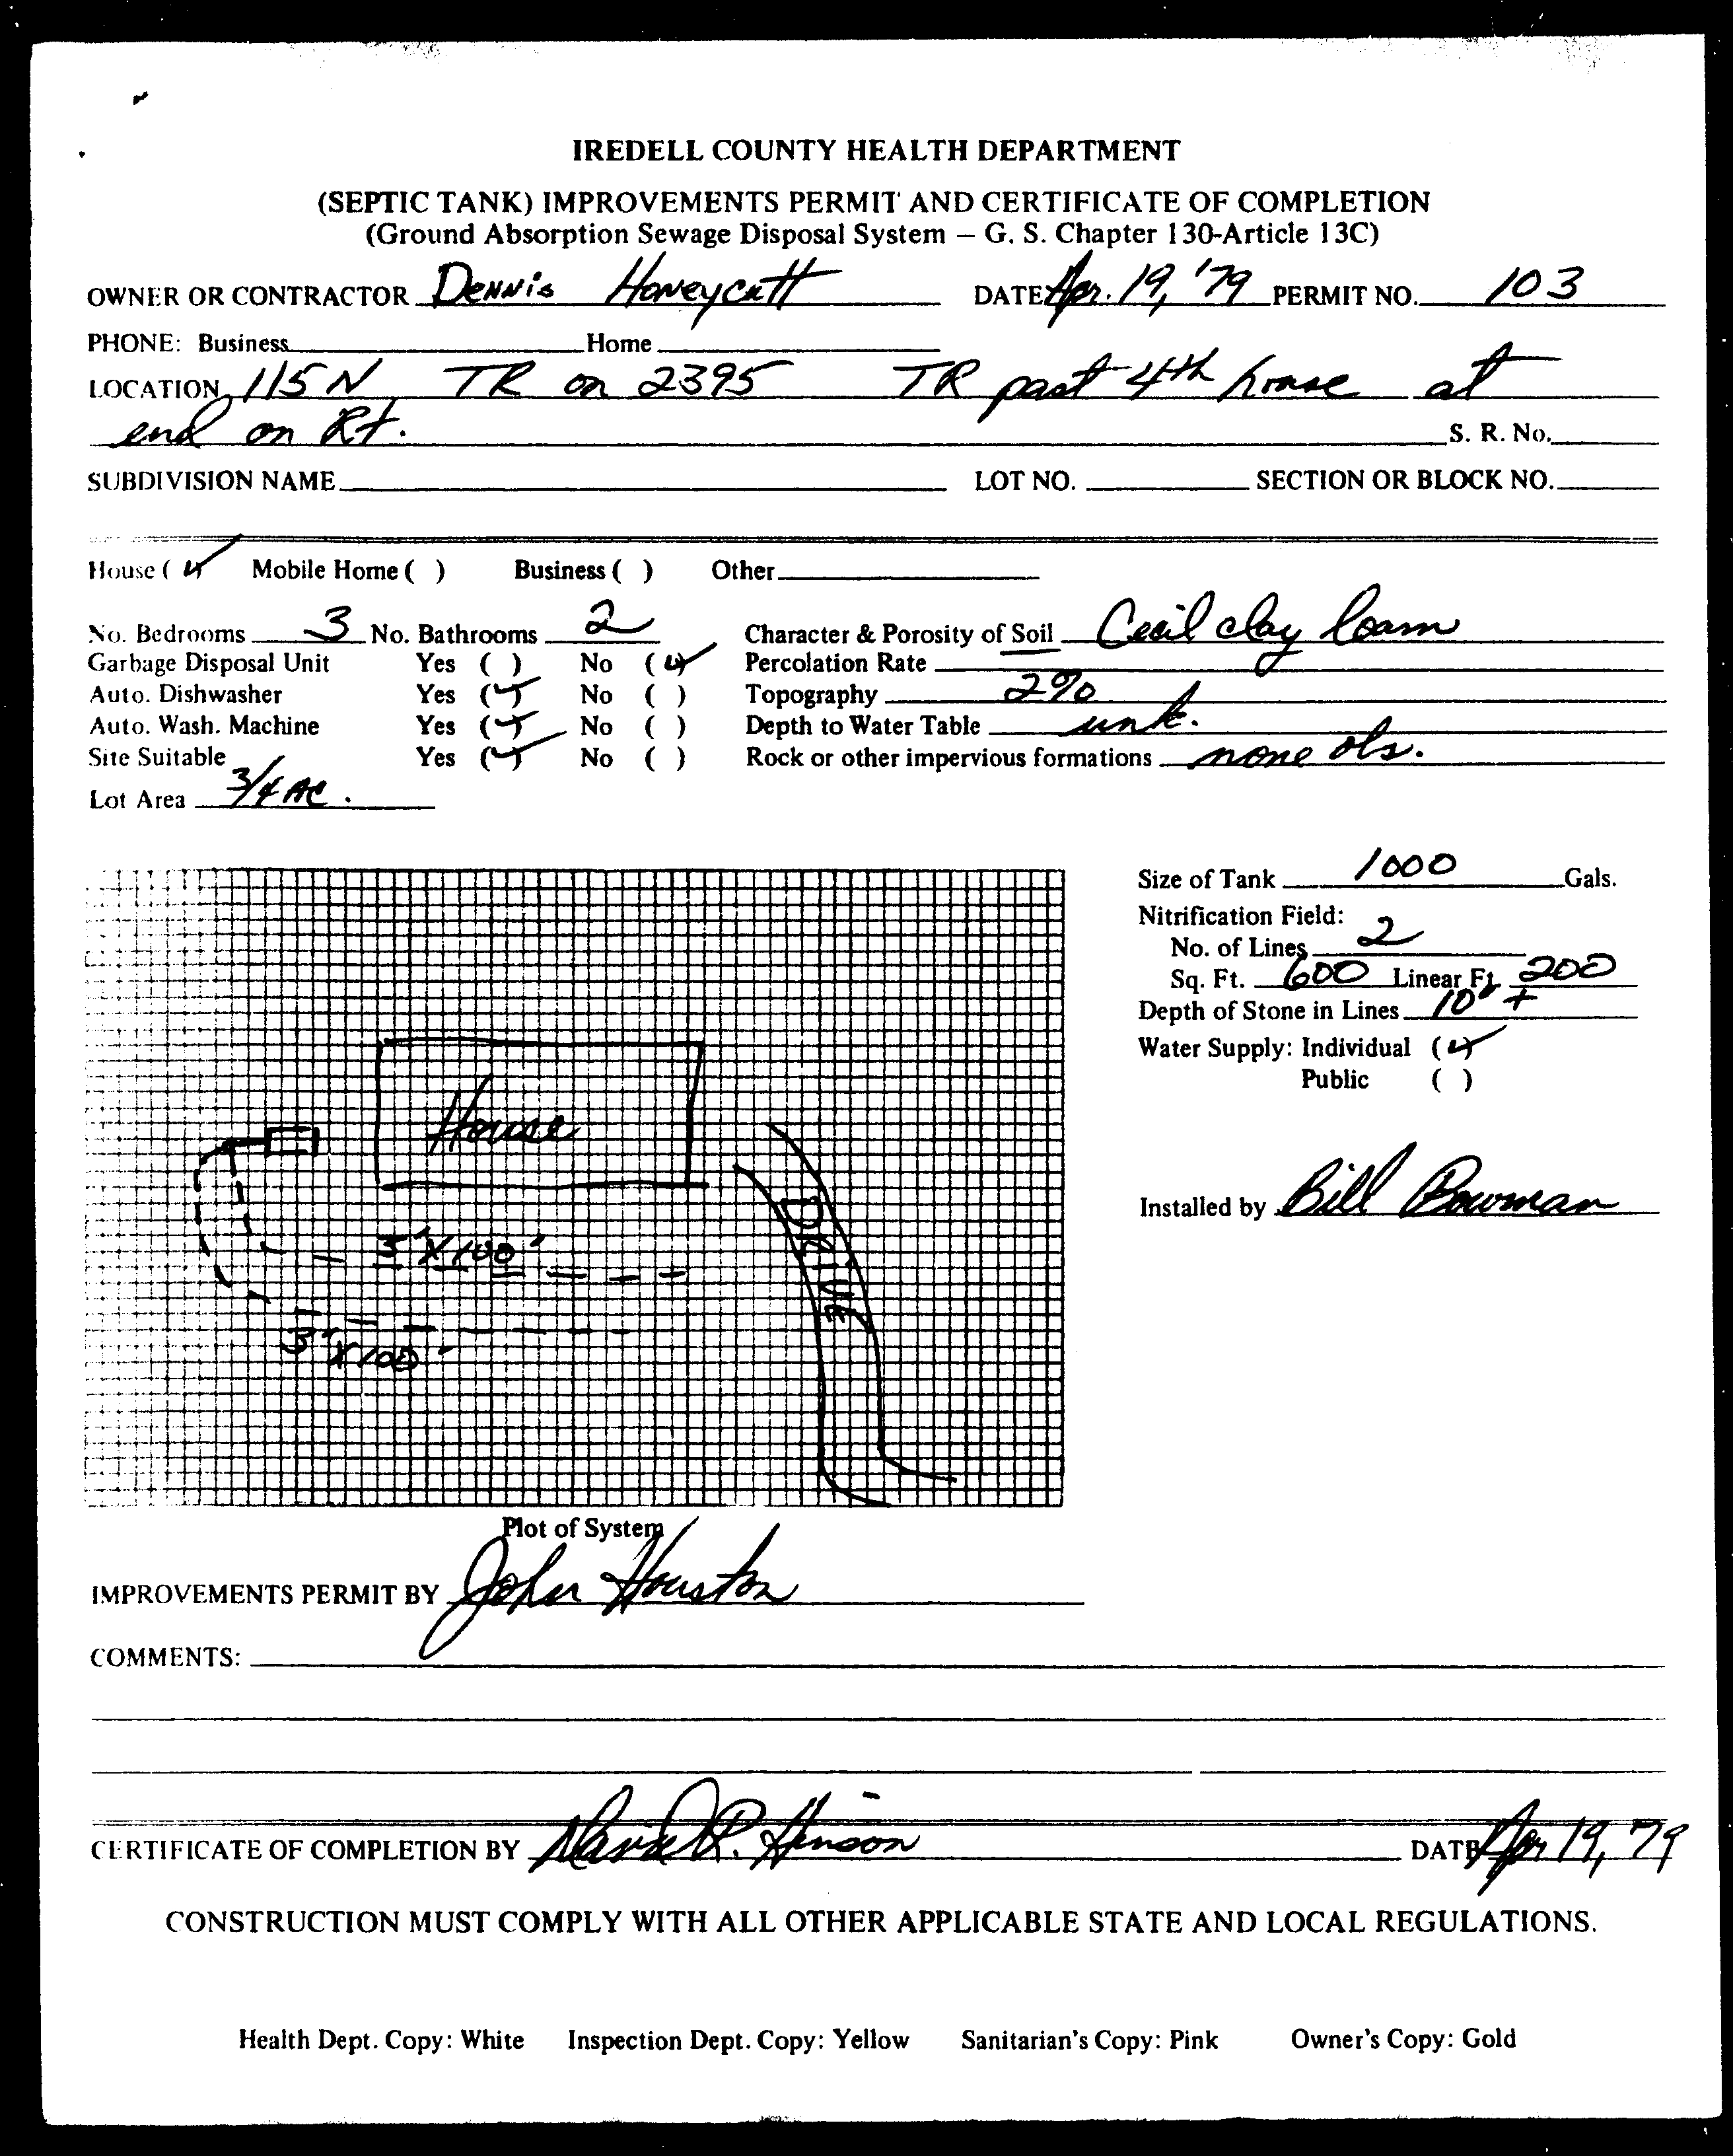 IREDELL COUNTY HEALTH DEPARTMENT
(SEPTIC TANK) IMPROVEMENTS PERMIT AND CERTIFICATE OF COMPLETION
(Ground Absorption Sewage Disposal System – G. S. Chapter 130-Article 13C)
OWNER OR CONTRACTOR Dennis Honeycutt DATE Apr. 19, '79 PERMIT NO. 103
PHONE: Business Home
LOCATION 115 N TR on 2395 TR past 4th house at
end on Rt. S. R. No.
SUBDIVISION NAME LOT NO. SECTION OR BLOCK NO.
House (✓) Mobile Home ( ) Business ( ) Other
No. Bedrooms 3 No. Bathrooms 2 Character & Porosity of Soil Cecil clay loam
Garbage Disposal Unit Yes ( ) No (✓) Percolation Rate
Auto. Dishwasher Yes (✓) No ( ) Topography 2%
Auto. Wash. Machine Yes (✓) No ( ) Depth to Water Table unk.
Site Suitable Yes (✓) No ( ) Rock or other impervious formations none obs.
Lot Area 3/4 AC.
Size of Tank 1000 Gals.
Nitrification Field:
No. of Lines 2
Sq. Ft. 600 Linear Ft. 200
Depth of Stone in Lines 10" +
Water Supply: Individual (✓)
Public ( )
Installed by Bill Bowman
House
DRIVE
3' X 100'
3' X 100'
Plot of System
IMPROVEMENTS PERMIT BY John Houston
COMMENTS:
CERTIFICATE OF COMPLETION BY David R. Hinson DATE Apr 19, 79
CONSTRUCTION MUST COMPLY WITH ALL OTHER APPLICABLE STATE AND LOCAL REGULATIONS.
Health Dept. Copy: White Inspection Dept. Copy: Yellow Sanitarian's Copy: Pink Owner's Copy: Gold